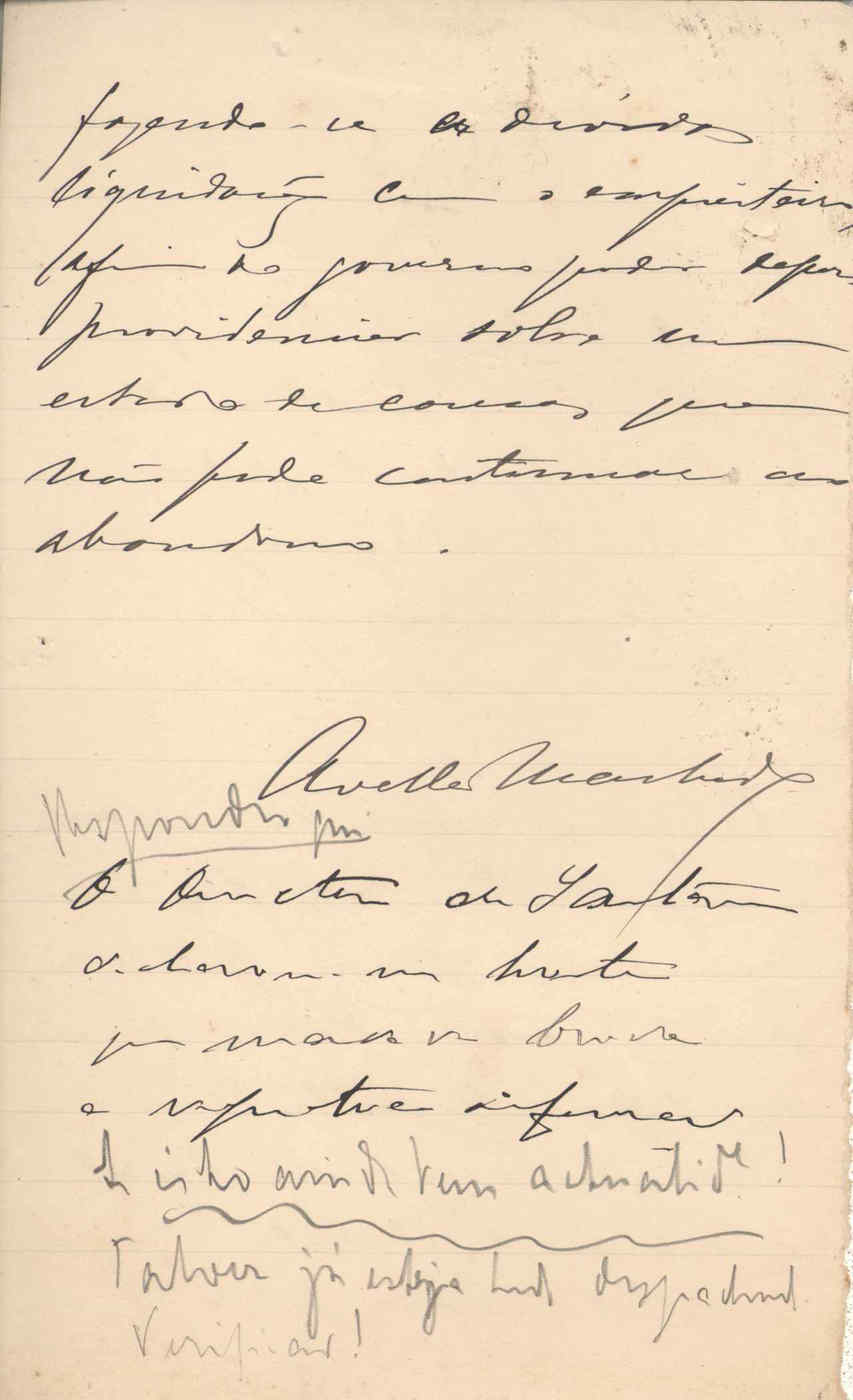 fazendo-se as devidas
liquidação com o empreiteiro,
afim do governo poder depois
providenciar sobre um
estado de cousas que
não pode continuar ao
abandono.
Avellar Machado
Responder que
O Director de Santarem
que mandasse
a respectiva informaç
Se isto ainda tem actualid.e!
Talvez já esteja tudo despachado
Verificar!